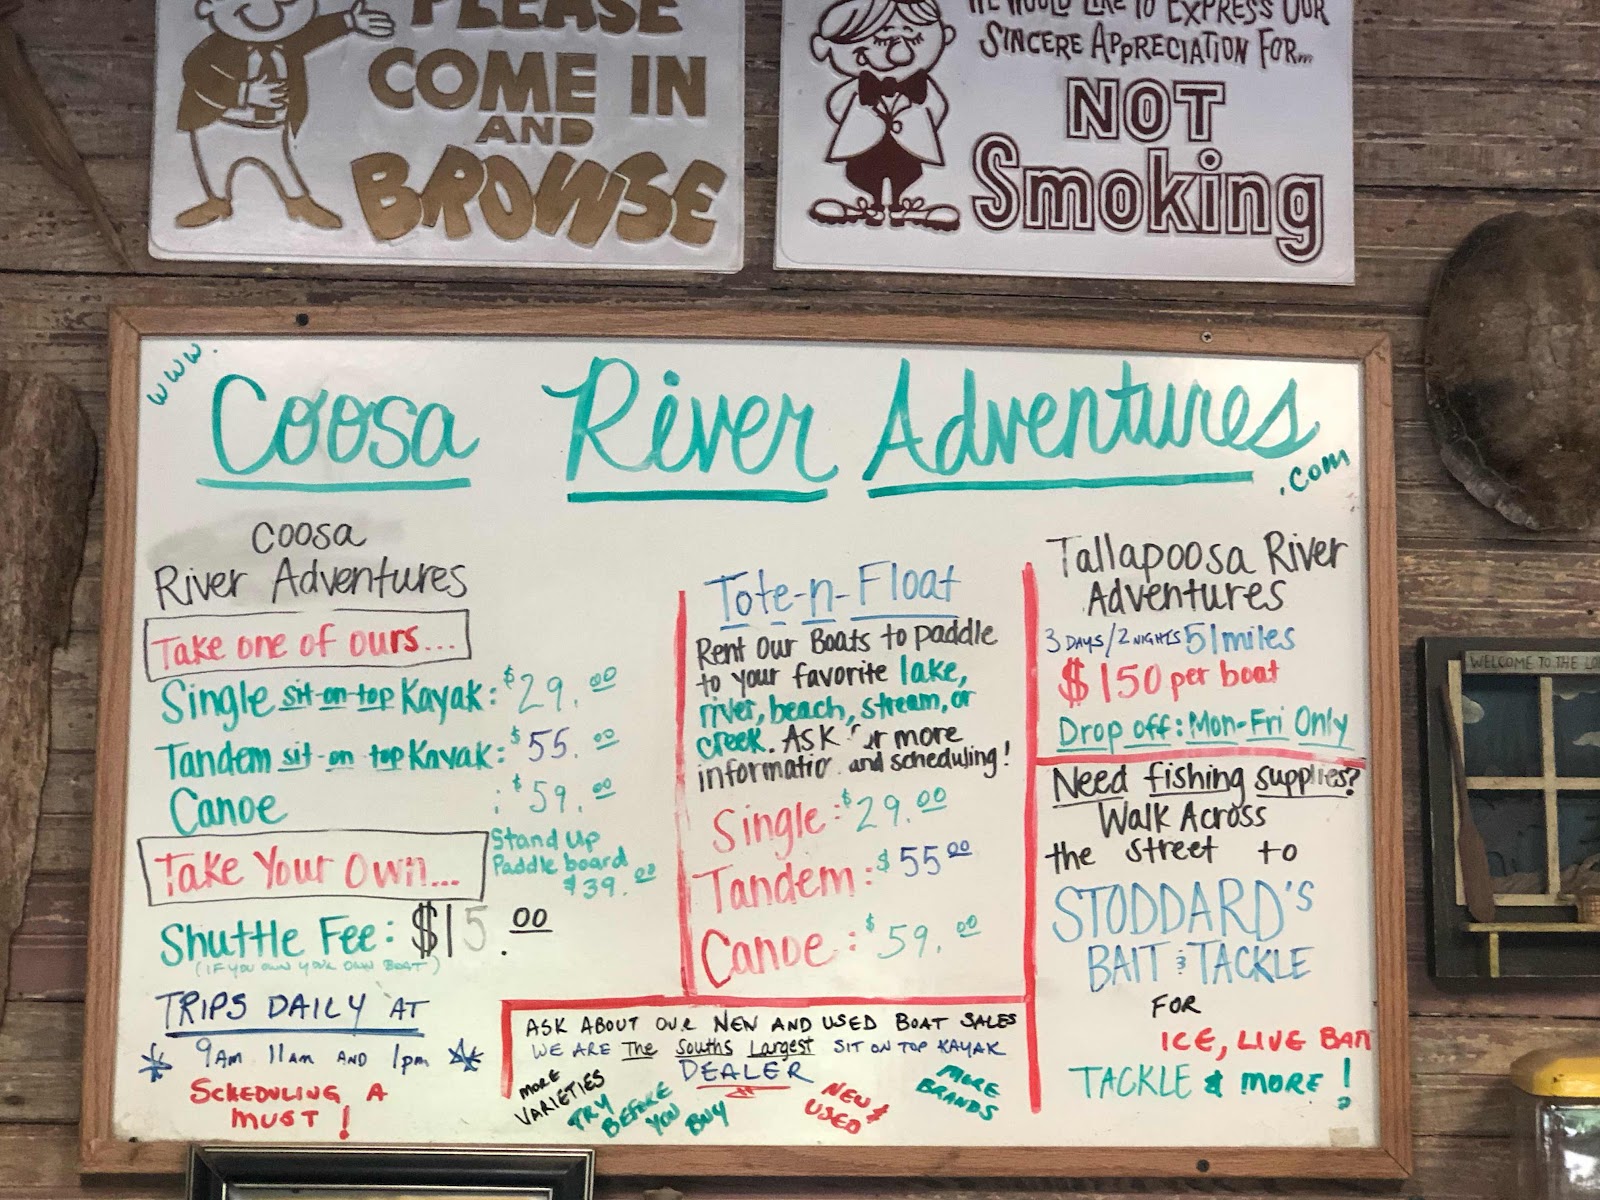 PLEASE
COME IN
AND
BROWSE
WE WOULD LIKE TO EXPRESS OUR
SINCERE APPRECIATION FOR...
NOT
Smoking
www.
Coosa River Adventures
.com
Coosa
River Adventures
Take one of ours...
Single sit-on-top Kayak: $29.00
Tandem sit-on-top Kayak: $55.00
Canoe : $59.00
Stand Up
Paddle board
$39.00
Take Your Own...
Shuttle Fee: $15.00
(IF YOU OWN YOUR OWN BOAT)
TRIPS DAILY AT
9AM 11am AND 1pm
SCHEDULING A
MUST!
Tote-n-Float
Rent Our Boats to paddle
to your favorite lake,
river, beach, stream, or
creek. Ask for more
information and scheduling!
Single: $29.00
Tandem: $55.00
Canoe: $59.00
ASK ABOUT OUR NEW AND USED BOAT SALES
WE ARE The Souths Largest SIT ON TOP KAYAK
DEALER
MORE
VARIETIES
TRY
BEFORE
YOU
BUY
NEW &
USED
MORE
BRANDS
Tallapoosa River
Adventures
3 DAYS/2 NIGHTS 51 miles
$150 per boat
Drop off: Mon-Fri Only
Need fishing supplies?
Walk Across
the street to
STODDARD'S
BAIT & TACKLE
FOR
ICE, LIVE BAIT
TACKLE & MORE!
WELCOME TO THE